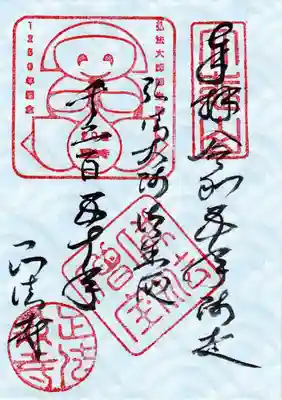 奉拝 令和五年師走
弘法大師御生誕
千二百五十年
正法寺
弘法大師御生誕
1250年記念